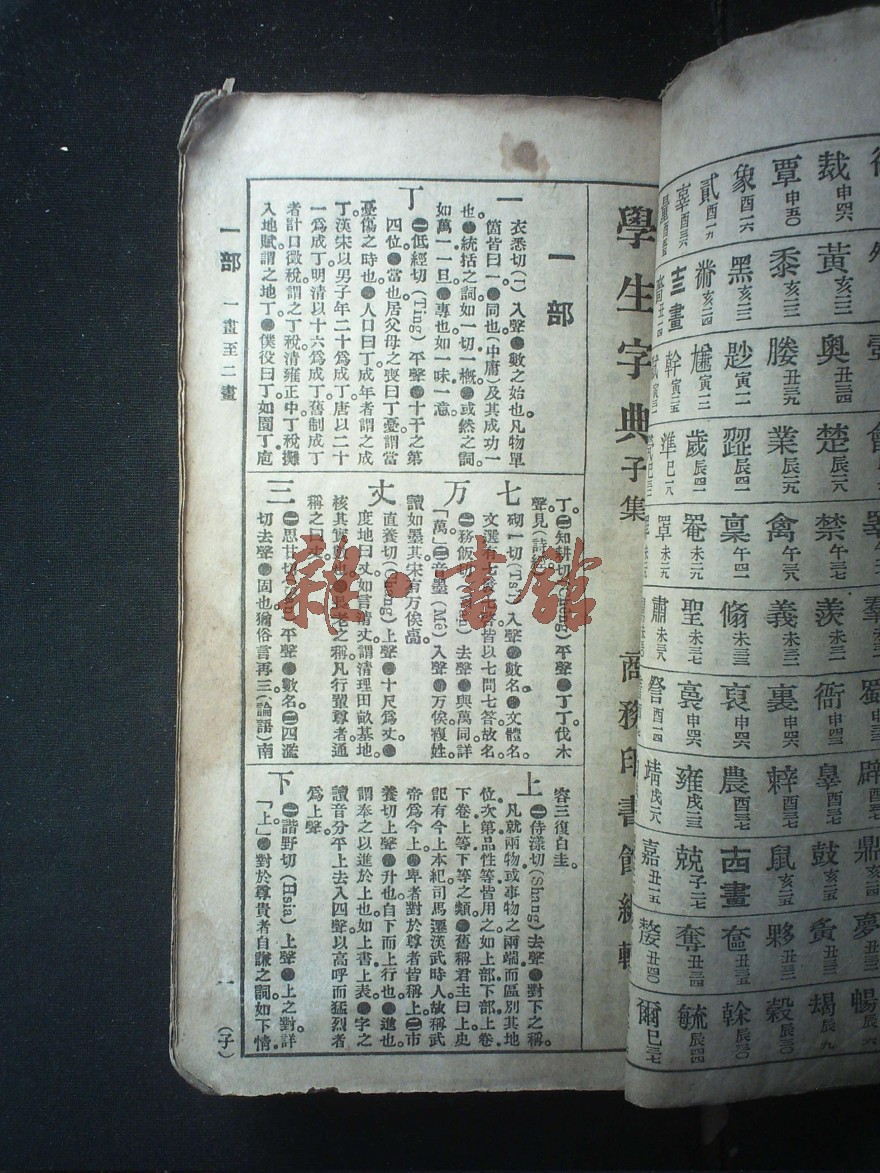 學生字典 子集
商務印書館編輯
一部
一
衣悉切(I)入聲●數之始也凡物單
箇皆曰一●同也(中庸)及其成功一
也●統括之詞如一切一槪●或然之詞
如萬一一旦●專也如一味一意
丁
㊀低經切(Ting)平聲●十干之第
四位●當也居父母之喪曰丁憂謂當
憂傷之時也●人口曰丁成年者謂之成
丁漢宋以男子年二十爲成丁唐以二十
一爲成丁明清以十六爲成丁舊制成丁
者計口徵稅謂之丁稅清雍正中丁稅攤
入地賦謂之地丁●僕役曰丁如園丁庖
丁㊁知耕切平聲●丁丁伐木
聲見(詩經)
七
砌一切入聲●數名●文體名
文選有七皆以七問七答故名
万
㊀務飯切去聲●與萬同詳
「萬」㊁音墨(Mê)入聲●万俟複姓
讀如墨其宋有万俟卨
丈
直養切上聲●十尺爲丈●
度地曰丈如言淸丈謂清理田畝基地
核其實數也●長老之稱凡行輩尊者通
稱之曰丈
三
㊀思甘切平聲●數名㊁四濫
切去聲●固也猶俗言再三(論語)南
容三復白圭
上
㊀侍漾切(Shang)去聲●對下之稱
凡就兩物或事物之兩端而區別其地
位次第品性等皆用之如上部下部上卷
下卷上等下等之類●舊稱君主曰上史
記有今上本紀司馬遷漢武時人故稱武
帝爲今上●卑者對於尊者皆稱上㊁市
養切上聲●升也自下而上行也●進也
謂奉之以進於上也如上書上表●字之
讀音分平上去入四聲以高呼而猛烈者
爲上聲
下
㊀諧野切(Hsia)上聲●上之對詳
「上」●對於尊貴者自謙之詞如下情
一部 一畫至二畫
一 (子)
裁申四六
覃申五〇
象酉一六
貳酉一九
辜酉三六
黃亥三三
黍亥三三
黑亥三三
黹亥三四
奧丑三四
塍丑三九
尟寅一二
尷寅一三
幹寅三五
楚辰二九
業辰二九
歲辰四一
準巳一八
禁午三七
禽午三八
稟午四一
罨未二九
羨未三三
義未三三
脩未三三
聖未三七
肅未三八
衙申四三
裏申四六
裒申四六
裊申四六
詧酉一四
辠酉三七
辣酉三七
農酉三七
雍戌三三
靖戌一八
鼓亥三五
鼠亥三五
兢子二七
嘉丑二五
夥丑三三
奩丑三四
奪丑三四
嫠丑四〇
暢辰一六
朅辰九
榖辰三〇
榦辰三〇
毓辰四四
爾巳三七
雜·書館